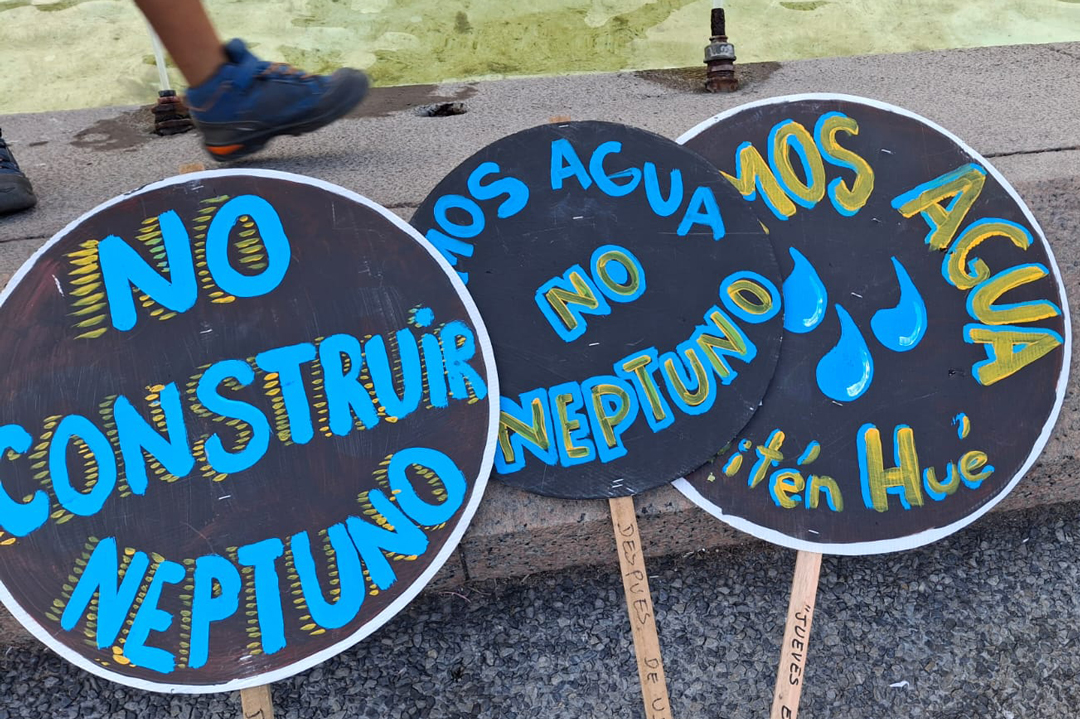 NO
CONSTRUIR
NEPTUNO
MOS AGUA
NO
NEPTUNO
MOS AGUA
¡tén Hué
DESPUES DE
"JUEVES